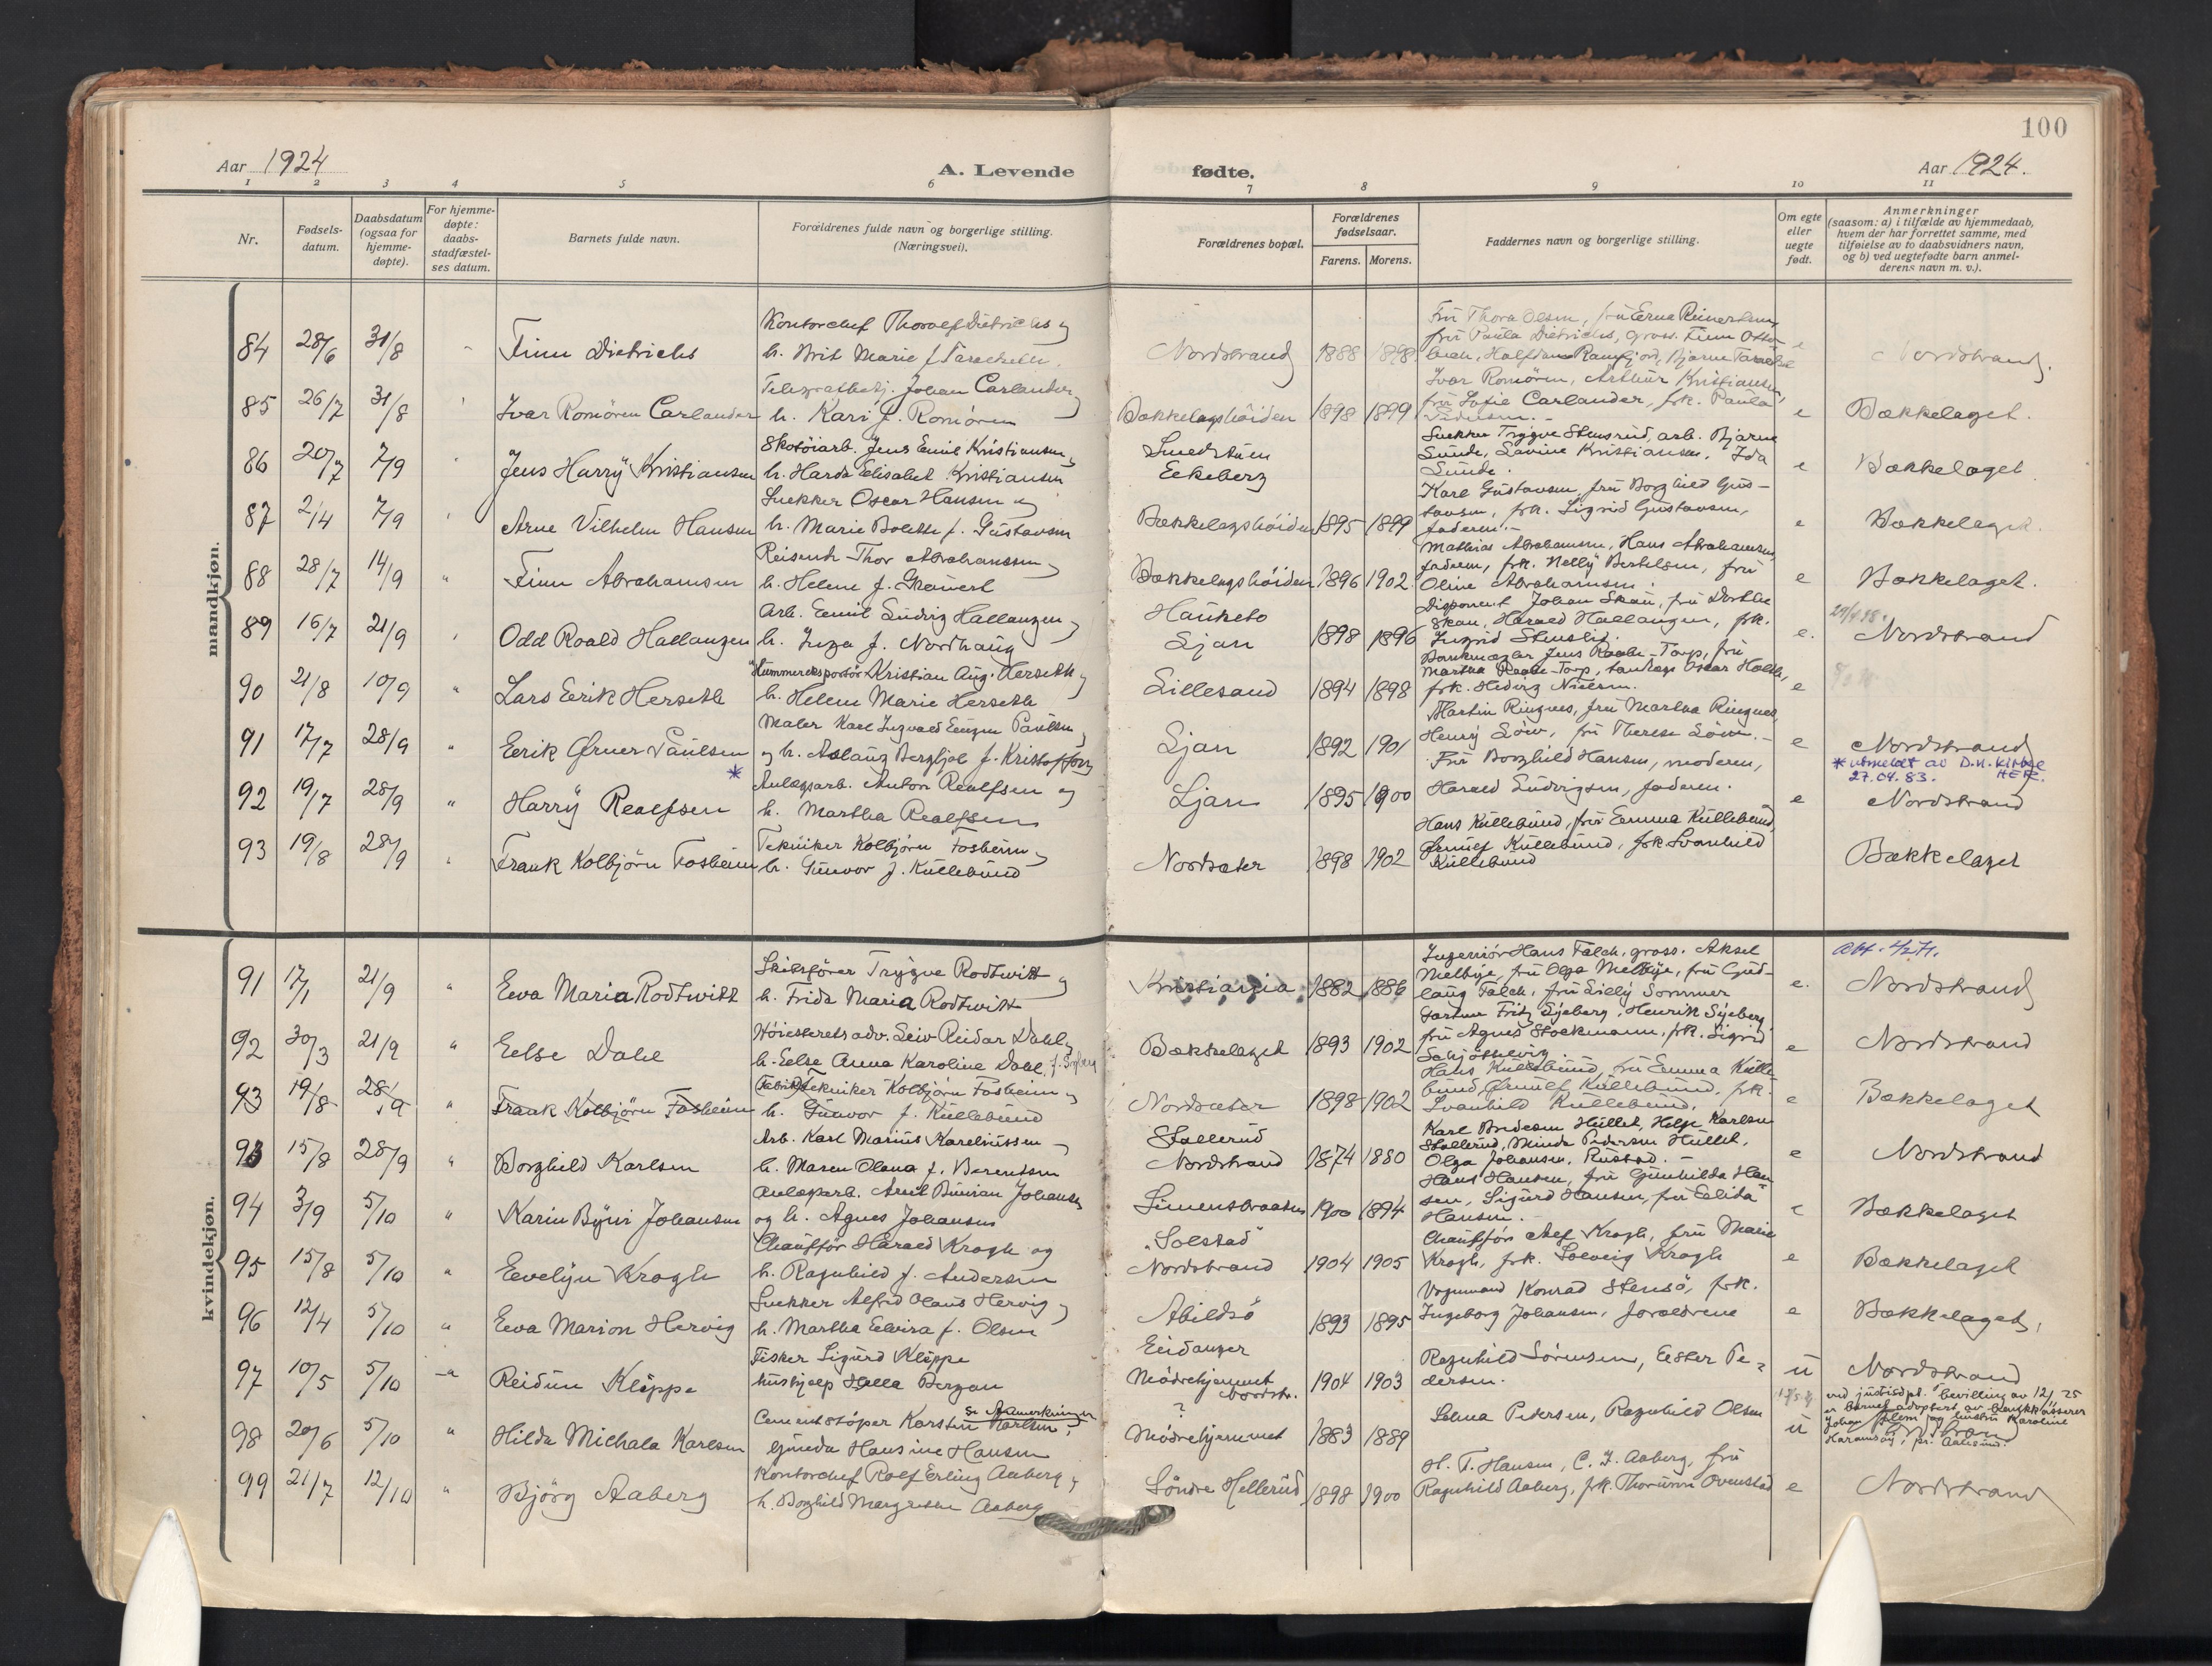 100
Aar 1924
A. Levende
fødte.
Aar 1924.
1 2 3 4 5 6 7 8 9 10 11
Nr.
Fødsels-
datum.
Daabsdatum
(ogsaa for
hjemme-
døpte).
For hjemme-
døpte:
daabs-
stadfæstel-
ses datum.
Barnets fulde navn.
Forældrenes fulde navn og borgerlige stilling.
(Næringsvei).
Forældrenes bopæl.
Forældrenes
fødselsaar.
Farens. Morens.
Faddernes navn og borgerlige stilling.
Om egte
eller
uegte
født.
Anmerkninger
(saasom: a) i tilfælde av hjemmedaab,
hvem der har forrettet samme, med
tilføielse av to daabsvidners navn,
og b) ved uegtefødte barn anmel-
derens navn m. v.).
mandkjøn.
84 28/6 31/8 Finn Dietrichs
Kontorchef Thoralf Dietrichs og
h. Brit Marie f.
Nordstrand 1888 1898
Fru Thora Olsen, fru Erna Reinertsen,
fru Paula Dietrichs, gross. Finn
Nordstrand.
85 26/7 31/8 Ivar Romören Carlander
Johan Carlander
h. Kari f. Romören
Bækkelagshöiden 1898 1899
Ivar Romören, Arthur Kristiansen,
fru Sofie Carlander, frk. Paula
e Bækkelaget.
86 20/7 7/9 Jens Harry Kristiansen
Skotöiarb. Jens Emil Kristiansen,
h. Harda Elisabet Kristiansen
Smedstuen
Eekeberg
Snekker Trygve Stensrud, arb. Bjarne
Sunde, Lavine Kristiansen, Ida
Sunde.
e Bækkelaget
87 2/4 7/9 Arne Vilhelm Hansen
Snekker Oscar Hansen og
h. Marie Bolette f. Gustavsen
Bækkelagshöiden 1895 1899
Karl Gustavsen, fru Borghild Gus-
tavsen, frk. Sigrid Gustavsen,
faderen.-
e Bækkelaget.
88 28/7 14/9 " Finn Abrahamsen
Reisende Thor Abrahamsen,
h. Helene f.
Bækkelagshöiden 1896 1902
Mathias Abrahamsen, Hans Abrahamsen,
faderen, frk. Nelly Bertelsen, fru
Oline Abrahamsen.
e Bækkelaget.
89 16/7 21/9 Odd Roald Hallangen
Arb. Emil Ludvig Hallangen,
h. Inga f. Nordhaug
Hauketo
Ljan 1898 1896
Disponent Johan Skau, fru Dorthe
Skau, Harald Hallangen, frk.
Ingrid Stenslid.
e. Nordstrand
90 21/8 10/9 " Lars Eerik Herseth
Hummereksportör Kristian Aug. Herseth,
h. Helene Marie Herseth
Lillesand 1894 1898
Bankmægler Jens Raabe-Torp, fru
Martha Raabe-Torp, Oscar Holth,
frk. Hedvig Nielsen.
e
91 17/7 28/9 " Eerik Ørner Paulsen
Maler Karl Ingvald Eugen Paulsen,
og h. Aslaug Bergljot f. Kristoffersen
Ljan 1892 1901
Martin Ringnes, fru Martha Ringnes,
Henry Löw, fru Therese Löw. -
e Nordstrand
* utmeldt av D.n. kirke
27.04.83.
92 19/7 28/9 " Harry Realfsen *
Anlægsarb. Anton Realfsen og
h. Martha Realfsen
Ljan 1895 1900
Fru Borghild Hansen, moderen,
Harald Ludvigsen, faderen.
e Nordstrand
93 19/8 28/9 Frank Kolbjörn Fosheim
Tekniker Kolbjörn Fosheim,
h. Gunvor f. Kullebund
Nordsæter 1898 1902
Hans Kullebund, fru Emma Kullebund,
Ørnulf Kullebund, frk. Svanhild
Kullebund
Bækkelaget
kvindekjøn.
91 17/1 21/9 " Eeva Maria Rodtwitt
Skibsförer Trygve Rodtwitt og
h. Frida Maria Rodtwitt
Kristiania 1882 1886
Ingeniör Hans Falch, gross. Aksel
Melbye, fru Olga Melbye, fru Gud-
laug Falch, fru Lilly Sommer
e. Nordstrand
92 30/3 21/9 " Eelse Dahl
Höiesteretsadv. Leiv Reidar Dahl,
h. Eelse Anna Karoline Dahl,
Bækkelaget 1893 1902
Fritz Syeberg, Henrik Syeberg,
fru Agnes Stockmann, frk. Sigrid
e Nordstrand
93 19/8 28/9 " Frank Kolbjörn Fosheim
Tekniker Kolbjörn Fosheim og
h. Gunvor f. Kullebund
Nordsæter 1898 1902
Hans Kullebund, fru Emma Kulle-
bund, Ørnulf Kullebund, frk.
Svanhild Kullebund.
e Bækkelaget
93 15/8 28/9 " Borghild Karlsen
Arb. Karl Marius Karelsen -
h. Maren Olena f. Berentsen
Stallerud
Nordstrand 1874 1880
Karl Bredesen Hullet, Helge Karlsen
Stallerud, Minda Pedersen Hullet,
Olga Johansen, Rustad. -
e Nordstrand
94 3/9 5/10 " Karin Byni Johansen
Anlægsarb. Johansen
og h. Agnes Johansen
Simensbraaten 1900 1894
Hans Hansen, fru Gunhilda Han-
sen, Sigurd Hansen, fru Eelida
Hansen.-
e Bækkelaget
95 15/8 5/10 " Eevelyn Krogh
Chaufför Harald Krogh og
h. Ragnhild f. Andersen
"Solstad"
Nordstrand 1904 1905
Chaufför Alf Krogh, fru Marie
Krogh, frk. Solveig Krogh
e Bækkelaget
96 12/4 5/10 " Eeva Marion Hervig
Snekker Alfred Olaus Hervig,
h. Martha Eelvira f. Olsen
Abildsö 1893 1895
Vognmand Konrad Stensö, frk.
Ingeborg Johansen, forældrene
e Bækkelaget,
97 10/5 5/10 Reidun Kleppe
Fisker Sigurd Kleppe
hushjælp Halla Bergan
Eidanger
Mödrehjemmet
Nordstr. 1904 1903
Ragnhild Sörensen, Eester Pe-
dersen.
u Nordstrand
98 20/6 5/10 " Hilda Michala Karlsen
Cementstöper Karsten Karlsen,
se Anmerkningen
Gunda Hansine Hansen
?
Mödrehjemmet 1883 1889
Selma Pedersen, Ragnhild Olsen
u
ved justisdpt. bevilling av 12/ 25
er barnet adoptert av
Johan og hustru Karoline
pr. Aalesund.
Nordstrand
99 21/7 12/10 " Bjørg Aaberg
Kontorchef Rolf Erling Aaberg,
h. Borghild Margrethe Aaberg
Söndre Hellerud 1898 1900
H. T. Hansen, C. J. Aaberg, fru
Ragnhild Aaberg, frk. Thorunn Ovenstad
e Nordstrand